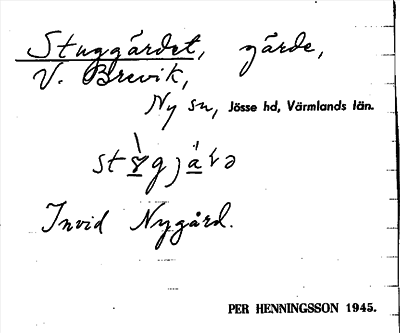 Stuggärdet, gärde,
V. Brevik,
Ny sn, Jösse hd, Värmlands län.
Invid Nygård.
PER HENNINGSSON 1945.